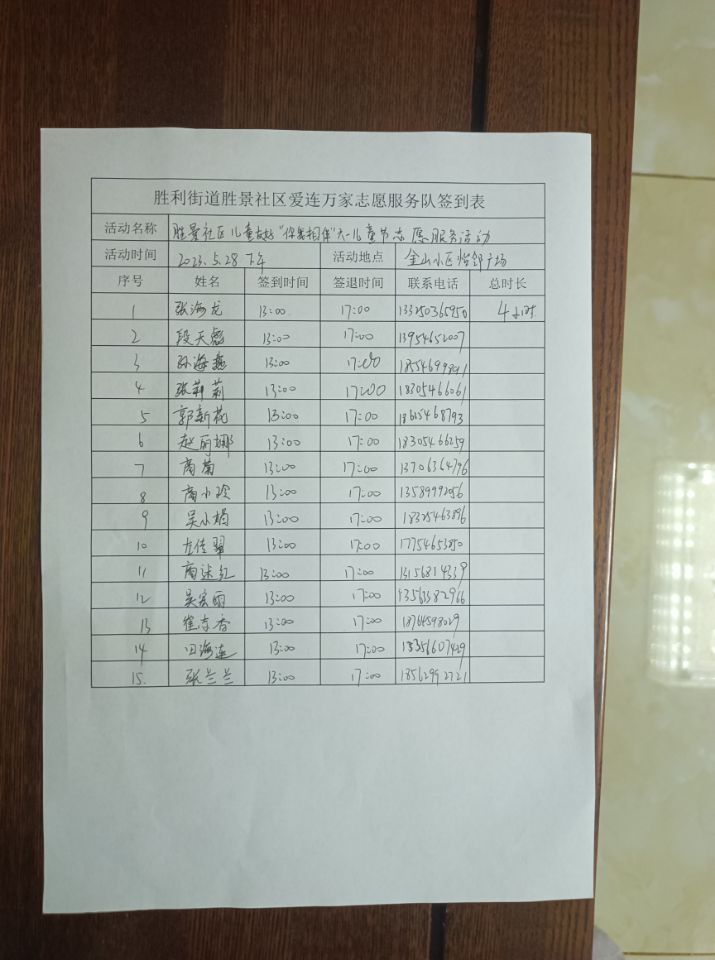 胜利街道胜景社区爱连万家志愿服务队签到表
活动名称 胜景社区儿童友好"你我相伴"六一儿童节志愿服务活动
活动时间 2023.5.28 下午 活动地点 金山小区 广场
序号 姓名 签到时间 签退时间 联系电话 总时长
1 张海龙 13:00 17:00 133250365950 4小时
2 段天彪 13:00 17:00 13954652007
3 孙海燕 13:00 17:00
4 张莉莉 13:00 17:00 18305466061
5 郭新花 13:00 17:00 18615468793
6 赵丽娜 13:00 17:00 18305466259
7 商菊 13:00 17:00 13706364796
8 商小玲 13:00 17:00 13589992056
9 吴小娟 13:00 17:00 18325463896
10 左佳翠 13:00 17:00 17754653850
11 商 红 13:00 17:00 13156814339
12 吴宏丽 13:00 17:00 13563382966
13 崔 香 13:00 17:00 18764598029
14 田海连 13:00 17:00 18356607429
15. 张兰兰 13:00 17:00 18562992721